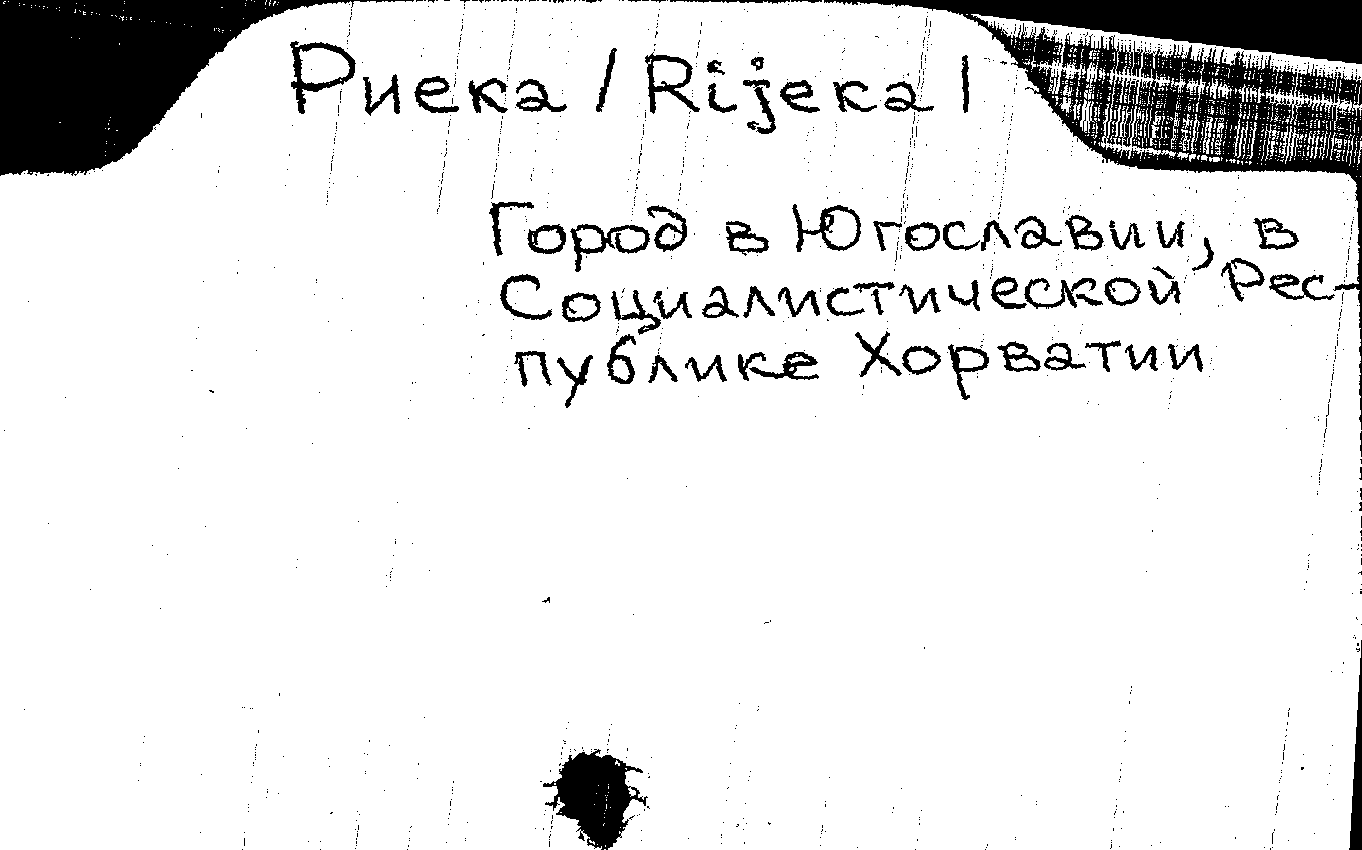 Риека / Rijeka |
Город в Югославии, в
Социалистической Рес-
публике Хорватии